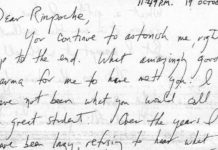 11:49PM. 19 Octo
Dear Rinpoche,
You continue to astonish me, right
p to the end. What amazingly good
arma for me to have met you. I
ave not been what you would call
great student. Over the years I
ave been lazy, refusing to hear what